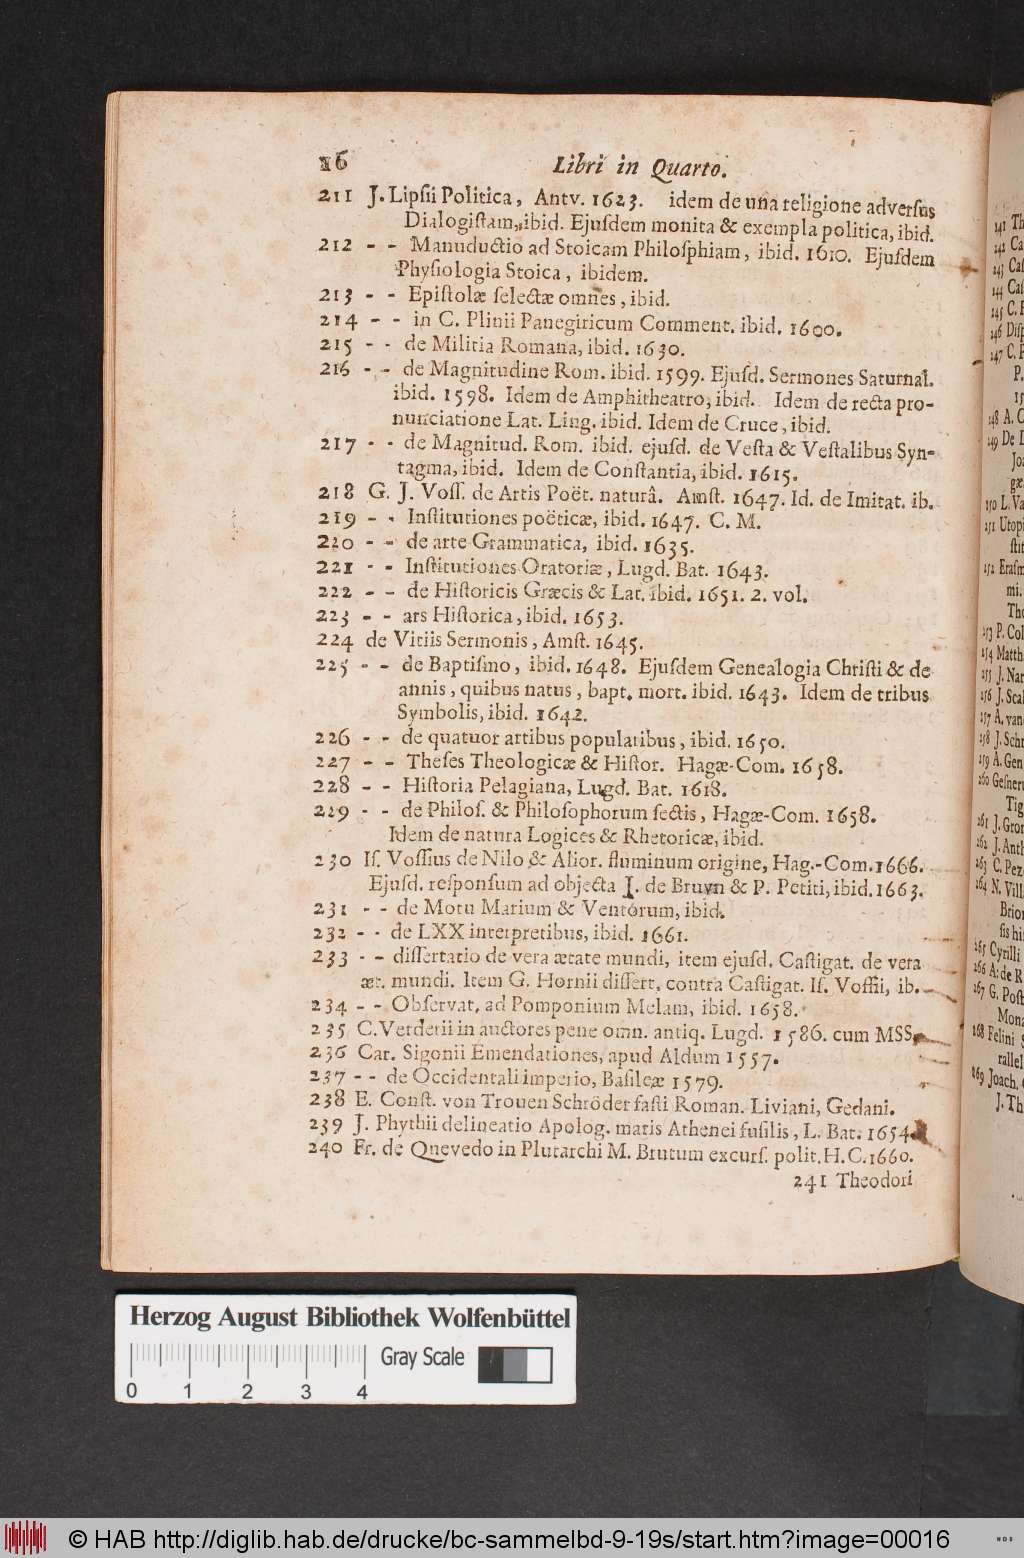 16 Libri in Quarto.
211 J. Lipſii Politica, Antv. 1623. idem de una religione adverſus
Dialogiſtam, ibid. Ejuſdem monita & exempla politica, ibid.
212 - - Manuductio ad Stoicam Philoſphiam, ibid. 1610. Ejuſdem
Phyſiologia Stoica, ibidem.
213 - - Epiſtolæ ſelectæ omnes, ibid.
214 - - in C. Plinii Panegiricum Comment. ibid. 1600.
215 - - de Militia Romana, ibid. 1630.
216 - - de Magnitudine Rom. ibid. 1599. Ejuſd. Sermones Saturnal.
ibid. 1598. Idem de Amphitheatro, ibid. Idem de recta pro-
nunciatione Lat. Ling. ibid. Idem de Cruce, ibid.
217 - - de Magnitud. Rom. ibid. ejuſd. de Veſta & Veſtalibus Syn-
tagma, ibid. Idem de Conſtantia, ibid. 1615.
218 G. J. Voſſ. de Artis Poët. naturâ. Amſt. 1647. Id. de Imitat. ib.
219 - - Inſtitutiones poëticæ, ibid. 1647. C. M.
220 - - de arte Grammatica, ibid. 1635.
221 - - Inſtitutiones Oratoriæ, Lugd. Bat. 1643.
222 - - de Hiſtoricis Græcis & Lat. ibid. 1651. 2. vol.
223 - - ars Hiſtorica, ibid. 1653.
224 de Vitiis Sermonis, Amſt. 1645.
225 - - de Baptiſmo, ibid. 1648. Ejuſdem Genealogia Chriſti & de
annis, quibus natus, bapt. mort. ibid. 1643. Idem de tribus
Symbolis, ibid. 1642.
226 - - de quatuor artibus populatibus, ibid. 1650.
227 - - Theſes Theologicæ & Hiſtor. Hagæ-Com. 1658.
228 - - Hiſtoria Pelagiana, Lugd. Bat. 1618.
229 - - de Philoſ. & Philoſophorum ſectis, Hagæ-Com. 1658.
Idem de natura Logices & Rhetoricæ, ibid.
230 Iſ. Voſſius de Nilo & Alior. fluminum origine, Hag.-Com. 1666.
Ejuſd. reſponſum ad objecta J. de Bruyn & P. Petiti, ibid. 1663.
231 - - de Motu Marium & Ventorum, ibid.
232 - - de LXX interpretibus, ibid. 1661.
233 - - diſſertatio de vera ætate mundi, item ejuſd. Caſtigat. de vera
æt. mundi. Item G. Hornii diſſert. contra Caſtigat. Iſ. Voſſii, ib.
234 - - Obſervat. ad Pomponium Melam, ibid. 1658.
235 C. Verderii in auctores pene omn. antiq. Lugd. 1586. cum MSS.
236 Car. Sigonii Emendationes, apud Aldum 1557.
237 - - de Occidentali imperio, Baſileæ 1579.
238 E. Conſt. von Trouen Schröder faſti Roman. Liviani, Gedani.
239 J. Phythii delineatio Apolog. maris Athenei fuſilis, L. Bat. 1654.
240 Fr. de Quevedo in Plutarchi M. Brutum excurſ. polit. H. C. 1660.
241 Theodori
241 Th
242 Ca
243 Caſ
244 Caſ
245 C. F
246 Diſp
247 C. F
P.
15
248 A. C
249 De I
Joa
gæ
250 L. Va
251 Utopi
ſtit
252 Eraſm
mi.
Tho
253 P. Col
254 Matth
255 J. Nar
256 J. Scal
257 A. van
258 J. Schr
259 A. Gen
260 Geſneru
Tig
261 J. Gron
262 J. Anth
263 C. Pez
264 N. Vill
Brion
ſis hi
265 Cyrilli
266 A. de R
267 G. Poſt
Mona
268 Felini S
rallel
269 Joach.
J. Th
Herzog August Bibliothek Wolfenbüttel
Gray Scale
0 1 2 3 4
© HAB http://diglib.hab.de/drucke/bc-sammelbd-9-19s/start.htm?image=00016